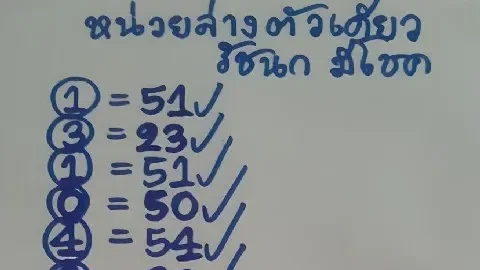 หน่วยล่างตัวเดียว
รัชนก มีโชค
1 = 51 ✓
3 = 23 ✓
1 = 51 ✓
0 = 50 ✓
4 = 54 ✓